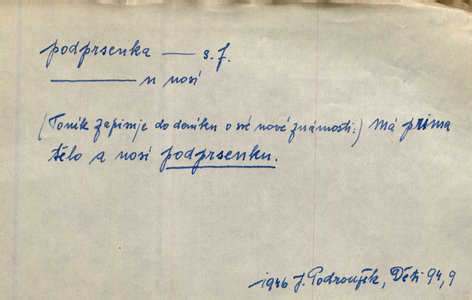 podprsenka — s. f.
——— u nosí
(Toník zapisuje do deníku o své nové známosti:) Má prima
tělo a nosí podprsenku.
1946 J. Podroužek, Děti 94,9